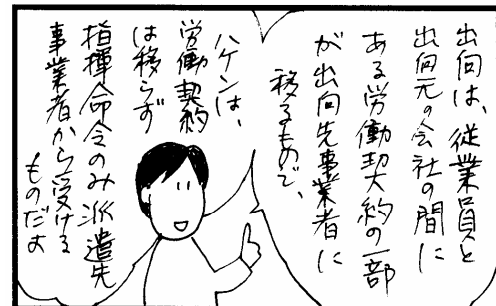 出向は、従業員と
出向元の会社の間に
ある労働契約の一部
が出向先事業者に
移るもので、
ハケンは、
労働契約
は移らず
指揮命令のみ派遣先
事業者から受ける
ものだよ